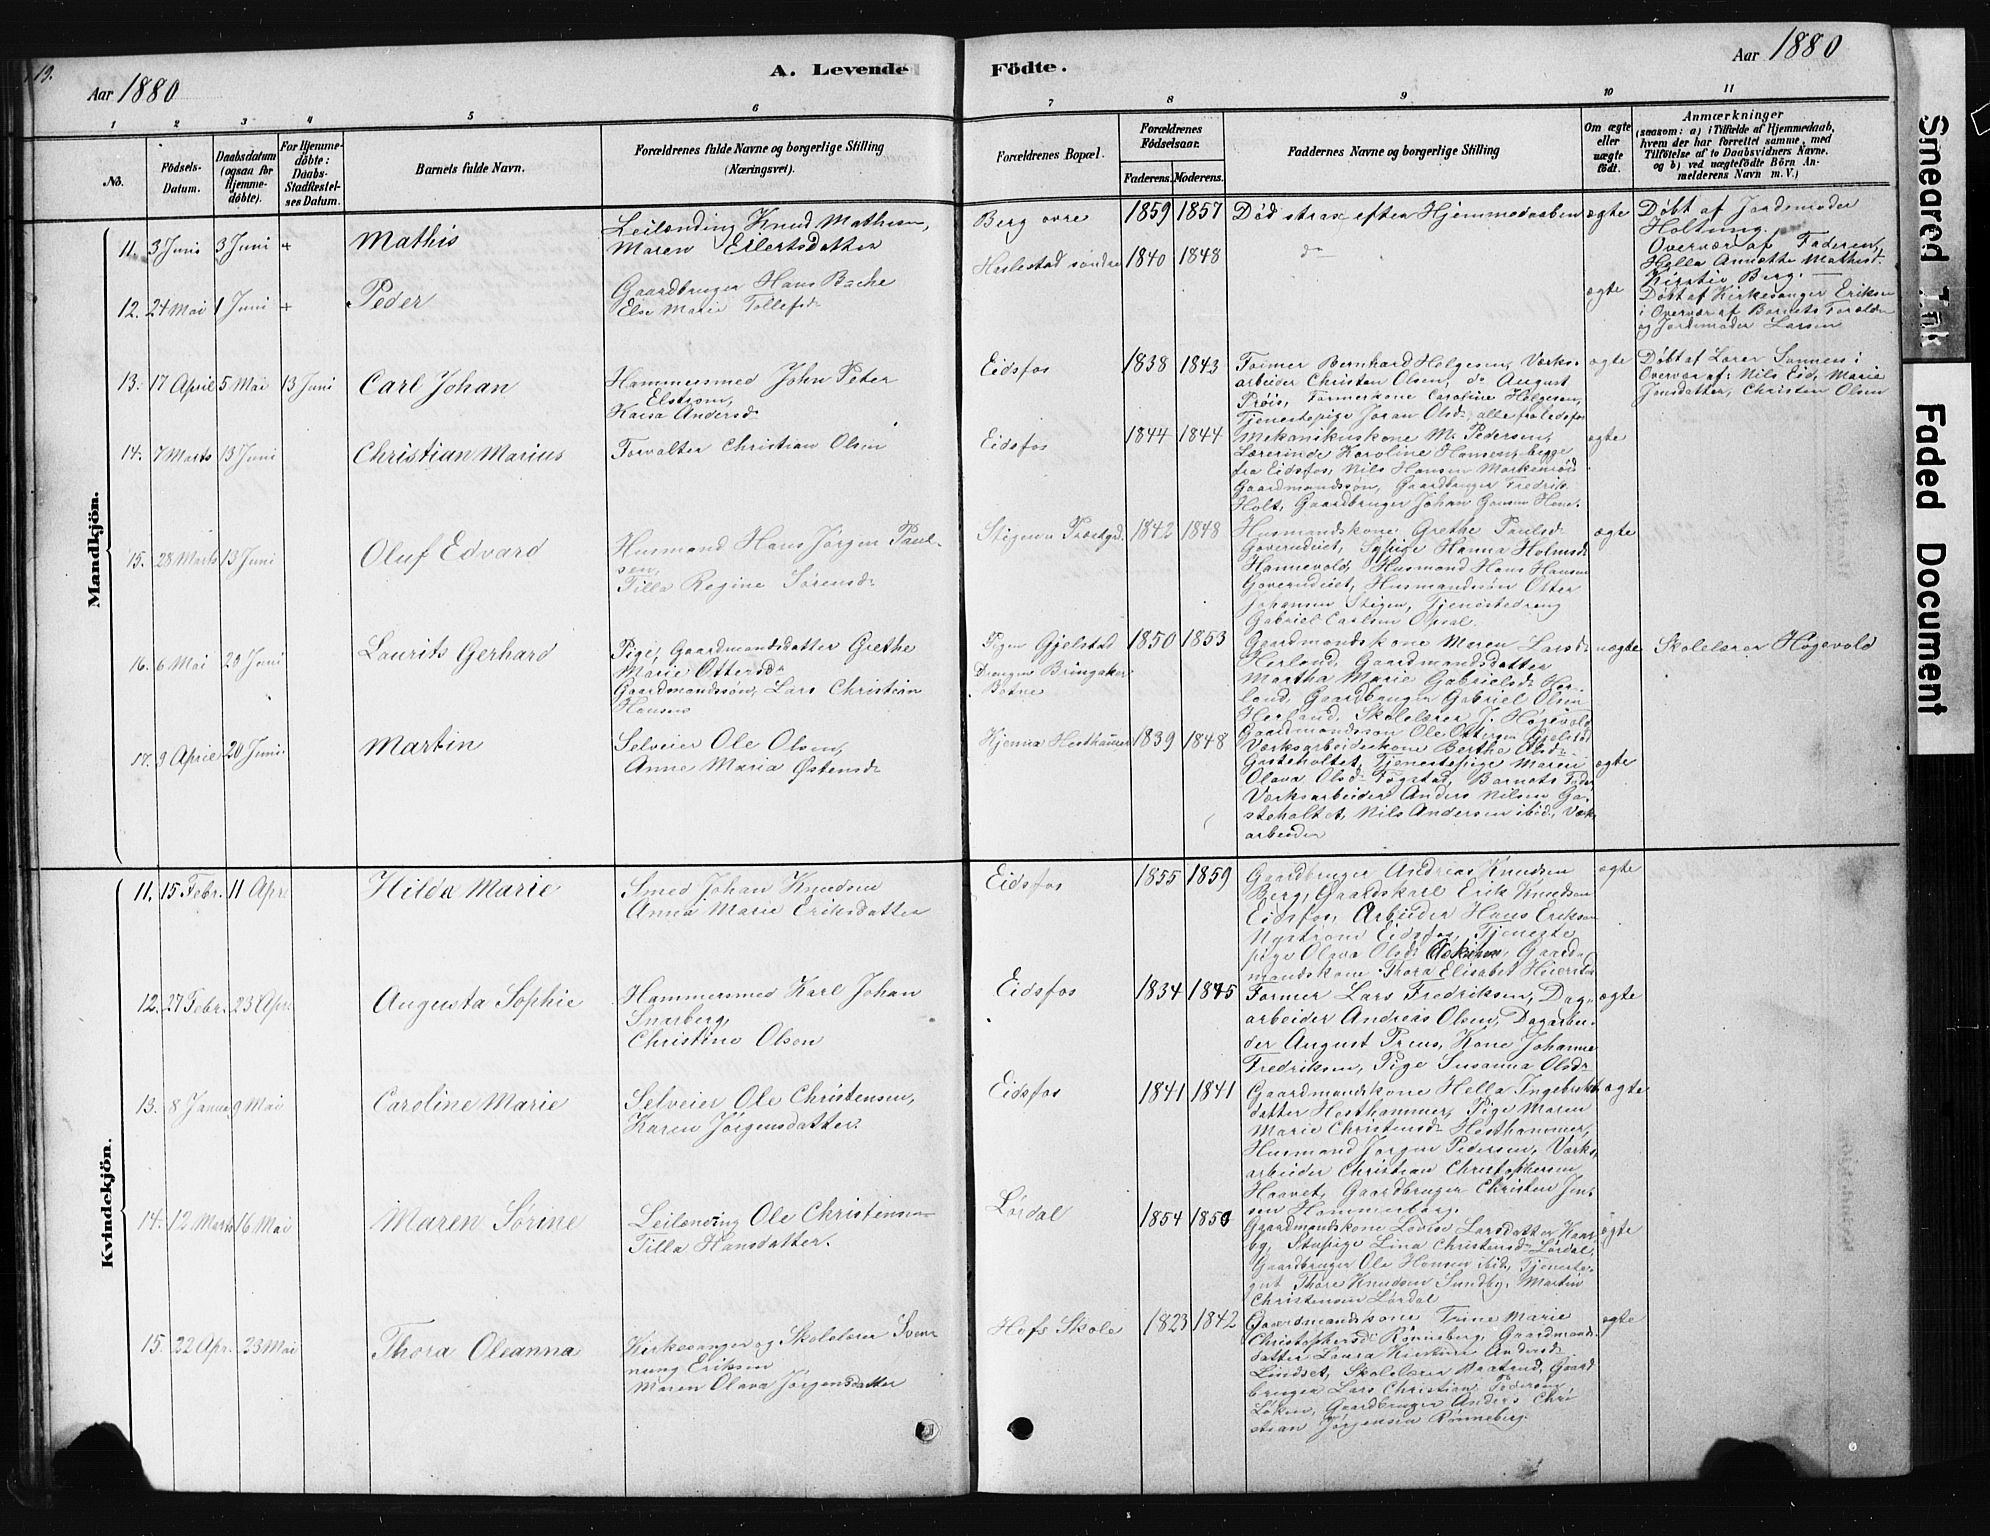 19.
Aar 1880
A. Levende
Födte.
Aar 1880
1 2 3 4 5 6
7 8 9 10 11
No.
Födsels-
Datum.
Daabsdatum
(ogsaa for
Hjemme-
döbte).
For Hjemme-
döbte:
Daabs-
Stadfæstel-
ses Datum.
Barnets fulde Navn.
Forældrenes fulde Navne og borgerlige Stilling
(Næringsvei).
Forældrenes Bopæl.
Forældrenes
Födselsaar.
Faderens. Moderens.
Faddernes Navne og borgerlige Stilling
Om ægte
eller
uægte
födt.
Anmærkninger
(saasom: a) i Tilfælde af Hjemmedaab,
hvem der har forrettet samme, med
Tilföielse af to Daabsvidners Navne.
og b) ved uægtefödte Börn An-
melderens Navn m. V.)
Mandkjön.
11. 3 Juni 3 Juni +
Mathis
Leilænding Knud Mathisen,
Maren Eilertsdatter
Berg øvre
1859 1857
Død strax efter Hjemmedaaben
ægte
Døbt af Jordemoder
Holtung.
Overvær af Faderen,
Helle Annette Mathisd.
Kirstie Berg.
12. 24 Mai 1 Juni +
Peder
Gaardbruger Hans Bache
Else Marie Tollefsd.
Heslestad søndre
1840 1848
do
ægte
Døbt af Kirkesanger Eriksen
i Overvær af Barnets Forældre
og Jordemoder Larsen
13. 17 April 5 Mai 13 Juni
Carl Johan
Hammersmed John Peter
Elstrom,
Kaisa Andersd.
Eidsfos
1838 1843
Former Bernhard Helgesen, Værks-
arbeider Christen Olsen, do August
Prøis, Formerkone Caroline Helgesen,
Tjenestepige Joran Olsd. alle fra Eidsfos
ægte
Døbt af Lærer Sannes i
Overvær af: Nils Eid, Marie
Jensdatter, Christen Olsen
14. 7 Marts 13 Juni
Christian Marius
Forvalter Christian Olsen
Eidsfos
1844 1844
Mekanikuskone M. Pedersen,
Lærerinde Karoline Hansen, begge
fra Eidsfos, Nils Hansen Markerød
Gaardmandssøn, Gaardbruger Fredrik
Holt, Gaardbruger Johan
ægte
15. 28 Marts 13 Juni
Oluf Edvard
Husmand Hans Jørgen Paul-
sen,
Tilla Regine Sørensd.
Stigen u Præstgd.
1842 1848
Husmandskone Grethe Paulsd.
Goverudeiet, Sypige Hanna Holmsd.
Hannevold, Husmand Hans Hansen
Goverudeiet, Husmandssøn Otter
Johansen Stigen, Tjenestedreng
Gabriel Carlsen Opsal.
ægte
16. 6 Mai 20 Juni
Laurits Gerhard
Pige, Gaardmandsdatter Grethe
Marie Ottersd.
Gaardmandssøn, Lars Christian
Hansen
Pigen Gjelstad
Drengen Bringaker
Botne
1850 1853
Gaardmandskone Maren Larsd.
Herland, Gaardmandsdatter
Martha Marie Gabrielsd. Her-
land, Gaardbruger Gabriel Olsen
Herland, Skolelærer J. Høgevold
Gaardmandssøn Ole Ottersen Gjelstad
uægte
Skolelærer Høgevold
17. 9 April 20 Juni.
Martin
Selveier Ole Olsen,
Anne Maria Østensd.
Hjemna Hesthammer
1839 1848
Værksarbeiderkone Berthe Olsd.
Gasteholtet, Tjenestepige Maren
Olava Olsd. Fogstad, Barnets Fader
Værksarbeider Anders Nilsen Ga-
steholtet, Nils Andersen ibid., Værk-
arbeider
ægte
Kvindekjön.
11. 15 Febr. 11 Apr.
Hilda Marie
Smed Johan Knudsen
Anna Marie Eriksdatter
Eidsfos
1855 1859
Gaardbruger Andreas Knudsen
Berg, Gaardskarl Erik Knudsen
Eidsfos, Arbeider Hans Eriksen
Nystrøm Eidsfos, Tjeneste
pige Olava Olsd. Askim, Gaard-
mandskone Thora Elisabet
ægte
12. 27 Febr. 23 Apr.
Augusta Sophie
Hammersmed Karl Johan
Snarberg,
Christine Olsen
Eidsfos
1834 1845
Former Lars Fredriksen, Dag-
arbeider Andreas Olsen, Dagarbei-
der August Preus, Kone Johanne
Fredriksen, Pige Susanna Olsd.
ægte
13. 8 Janua 9 Mai
Caroline Marie
Selveier Ole Christensen,
Karen Jørgensdatter.
Eidsfos
1841 1841
Gaardmandskone Hella Ingebrikts
datter Hesthammer, Pige Maren
Marie Christensd. Hesthammer,
Husmand Jørgen Pedersen, Værks
arbeider Christian Christophersen
Haavet, Gaardbruger Christen Jen-
sen Hammerborg.
ægte
14. 12 Marts 16 Mai
Maren Sørine
Leilænding Ole Christensen
Tilla Hansdatter.
Lørdal
1854 1850
Gaardmandskone Lovise Larsdatter Haar
by, Stuepige Lina Christensd. Lørdal,
Gaardbruger Ole Hansen ibid, Tjeneste-
gut Thore Knudsen Sundby, Martin
Christensen Lørdal
ægte
15. 22 Apr. 23 Mai
Thora Oleanna
Kirkesanger og Skolelærer Sven-
nung Eriksen
Maren Olava Jørgensdatter
Hofs Skole
1823 1842
Gaardmandskone Trine Marie
Christophersd. Rønneberg, Gaardmands
datter Laura Kirstine Andersd.
Lindset, Skolelærer Maatrud, Gaard-
bruger Lars Christian Pedersen
Løken, Gaardbruger Anders Chri
stian Jørgensen Rønneberg.
ægte
Smeared Ink
Faded Document